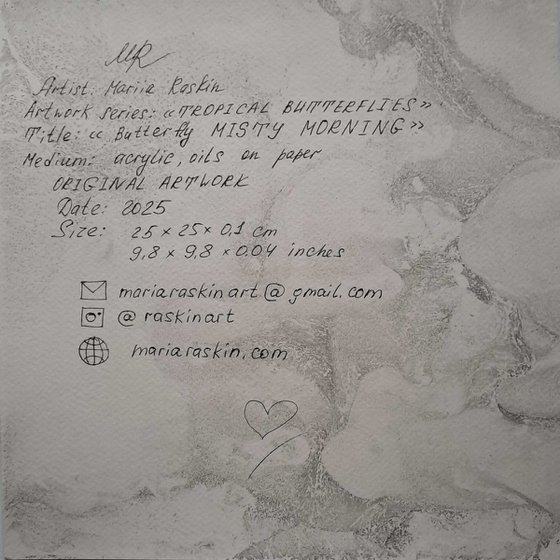 MR
Artist: Mariia Raskin
Artwork series: «TROPICAL BUTTERFLIES»
Title: « Butterfly MISTY MORNING»
Medium: acrylic, oils on paper
ORIGINAL ARTWORK
Date: 2025
Size: 25 x 25 x 0,1 cm
9,8 x 9,8 x 0.04 inches
mariaraskinart@gmail.com
@raskinart
mariaraskin.com